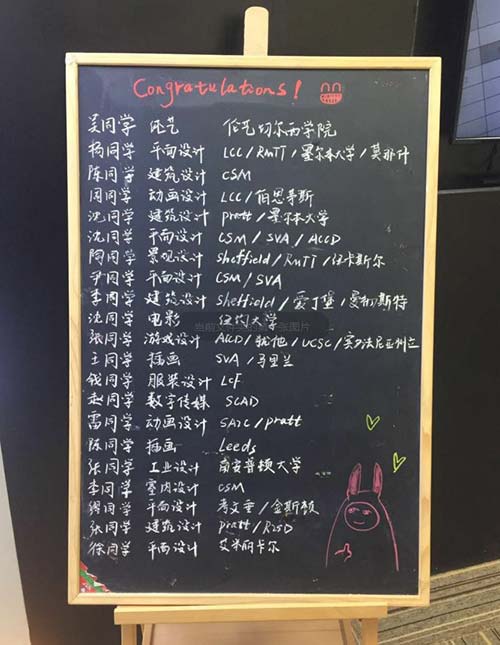 Congratulations!
吴同学 纯艺 伦艺切尔西学院
杨同学 平面设计 LCC/RMIT/墨尔本大学/莫那什
陈同学 建筑设计 CSM
周同学 动画设计 LCC/伯恩茅斯
沈同学 建筑设计 pratt/墨尔本大学
沈同学 平面设计 CSM/SVA/ACCD
陶同学 景观设计 sheffield/RMIT/纽卡斯尔
尹同学 平面设计 CSM/SVA
李同学 建筑设计 sheffield/爱丁堡/曼彻斯特
沈同学 电影 纽约大学
张同学 游戏设计 ACCD/犹他/UCSC/宾夕法尼亚州立
王同学 插画 SVA/马里兰
钱同学 服装设计 LCF
赵同学 数字传媒 SCAD
雷同学 动画设计 SAIC/pratt
陈同学 插画 Leeds
张同学 工业设计 南安普顿大学
李同学 室内设计 CSM
同学 平面设计 考文垂/金斯顿
张同学 建筑设计 pratt/RISD
徐同学 平面设计 艾米丽卡尔